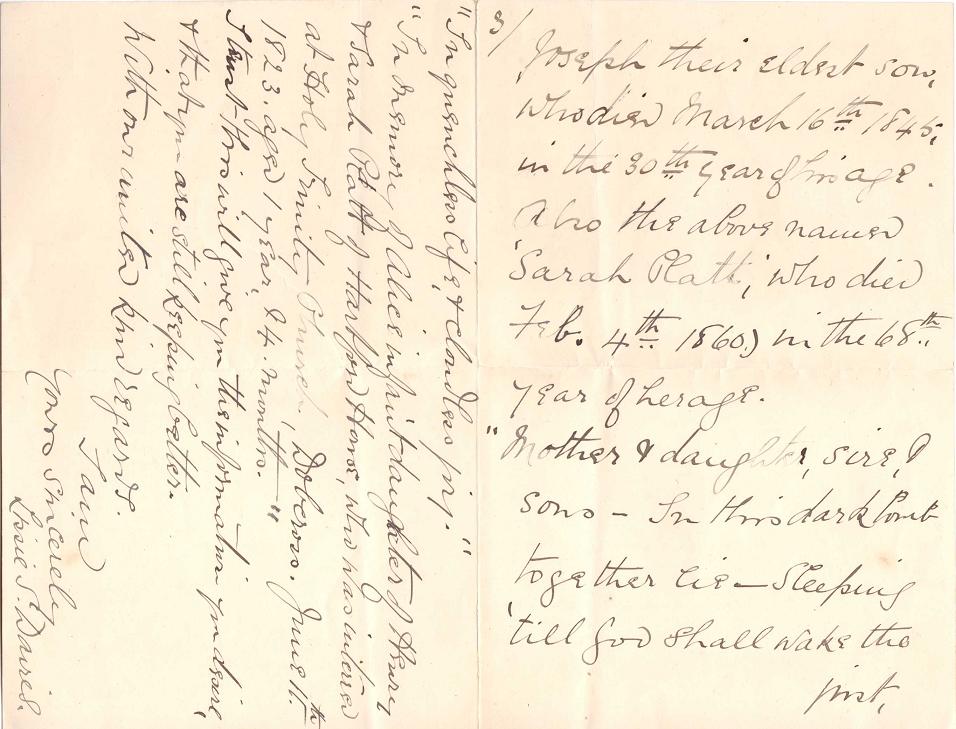 3/
Joseph their eldest son,
who died March 16th 1845,
in the 30th year of his age.
Also the above named
'Sarah Platt', who died
Feb. 4th 1860) in the 68th
year of her age.
"Mother & daughter, sire, &
sons – In this dark tomb
together lie – Sleeping
'till God shall wake the
just,
"In quenchless life, & cloudless joy."
"In memory of Alice infant daughter of Henry
& Sarah Platt of Harford Home, who was interred
at Holy Trinity Church, Dobcross. June 11th
1823. aged 1 year, & 4. months. "
I trust this will give you the information you desire,
& that you are still keeping better.
With our united kind regards.
I am
Yours sincerely
Lissie S. Davies.